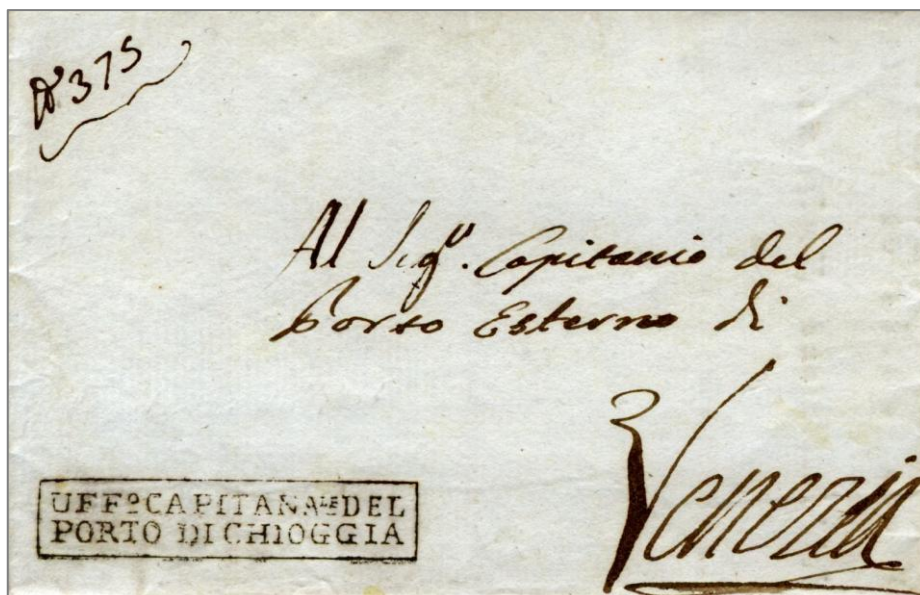 N° 375
Al Sigʳ. Capitanio del
Porto Esterno di
Venezia
UFFº CAPITANᴬᴸᴱ DEL
PORTO DI CHIOGGIA